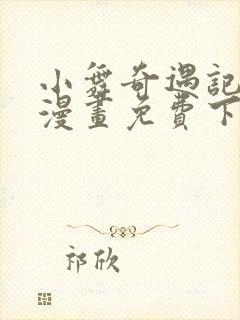 小舞奇遇記
漫畫免費下
祁欣